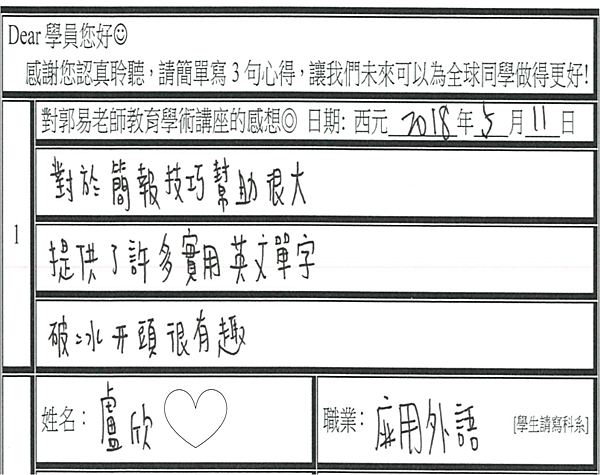 Dear 學員您好☺
感謝您認真聆聽，請簡單寫 3 句心得，讓我們未來可以為全球同學做得更好!
對郭易老師教育學術講座的感想◎ 日期: 西元 2018 年 5 月 11 日
1
對於簡報技巧幫助很大
提供了許多實用英文單字
破冰开頭很有趣
姓名： 盧欣♡
職業： 應用外語 [學生請寫科系]